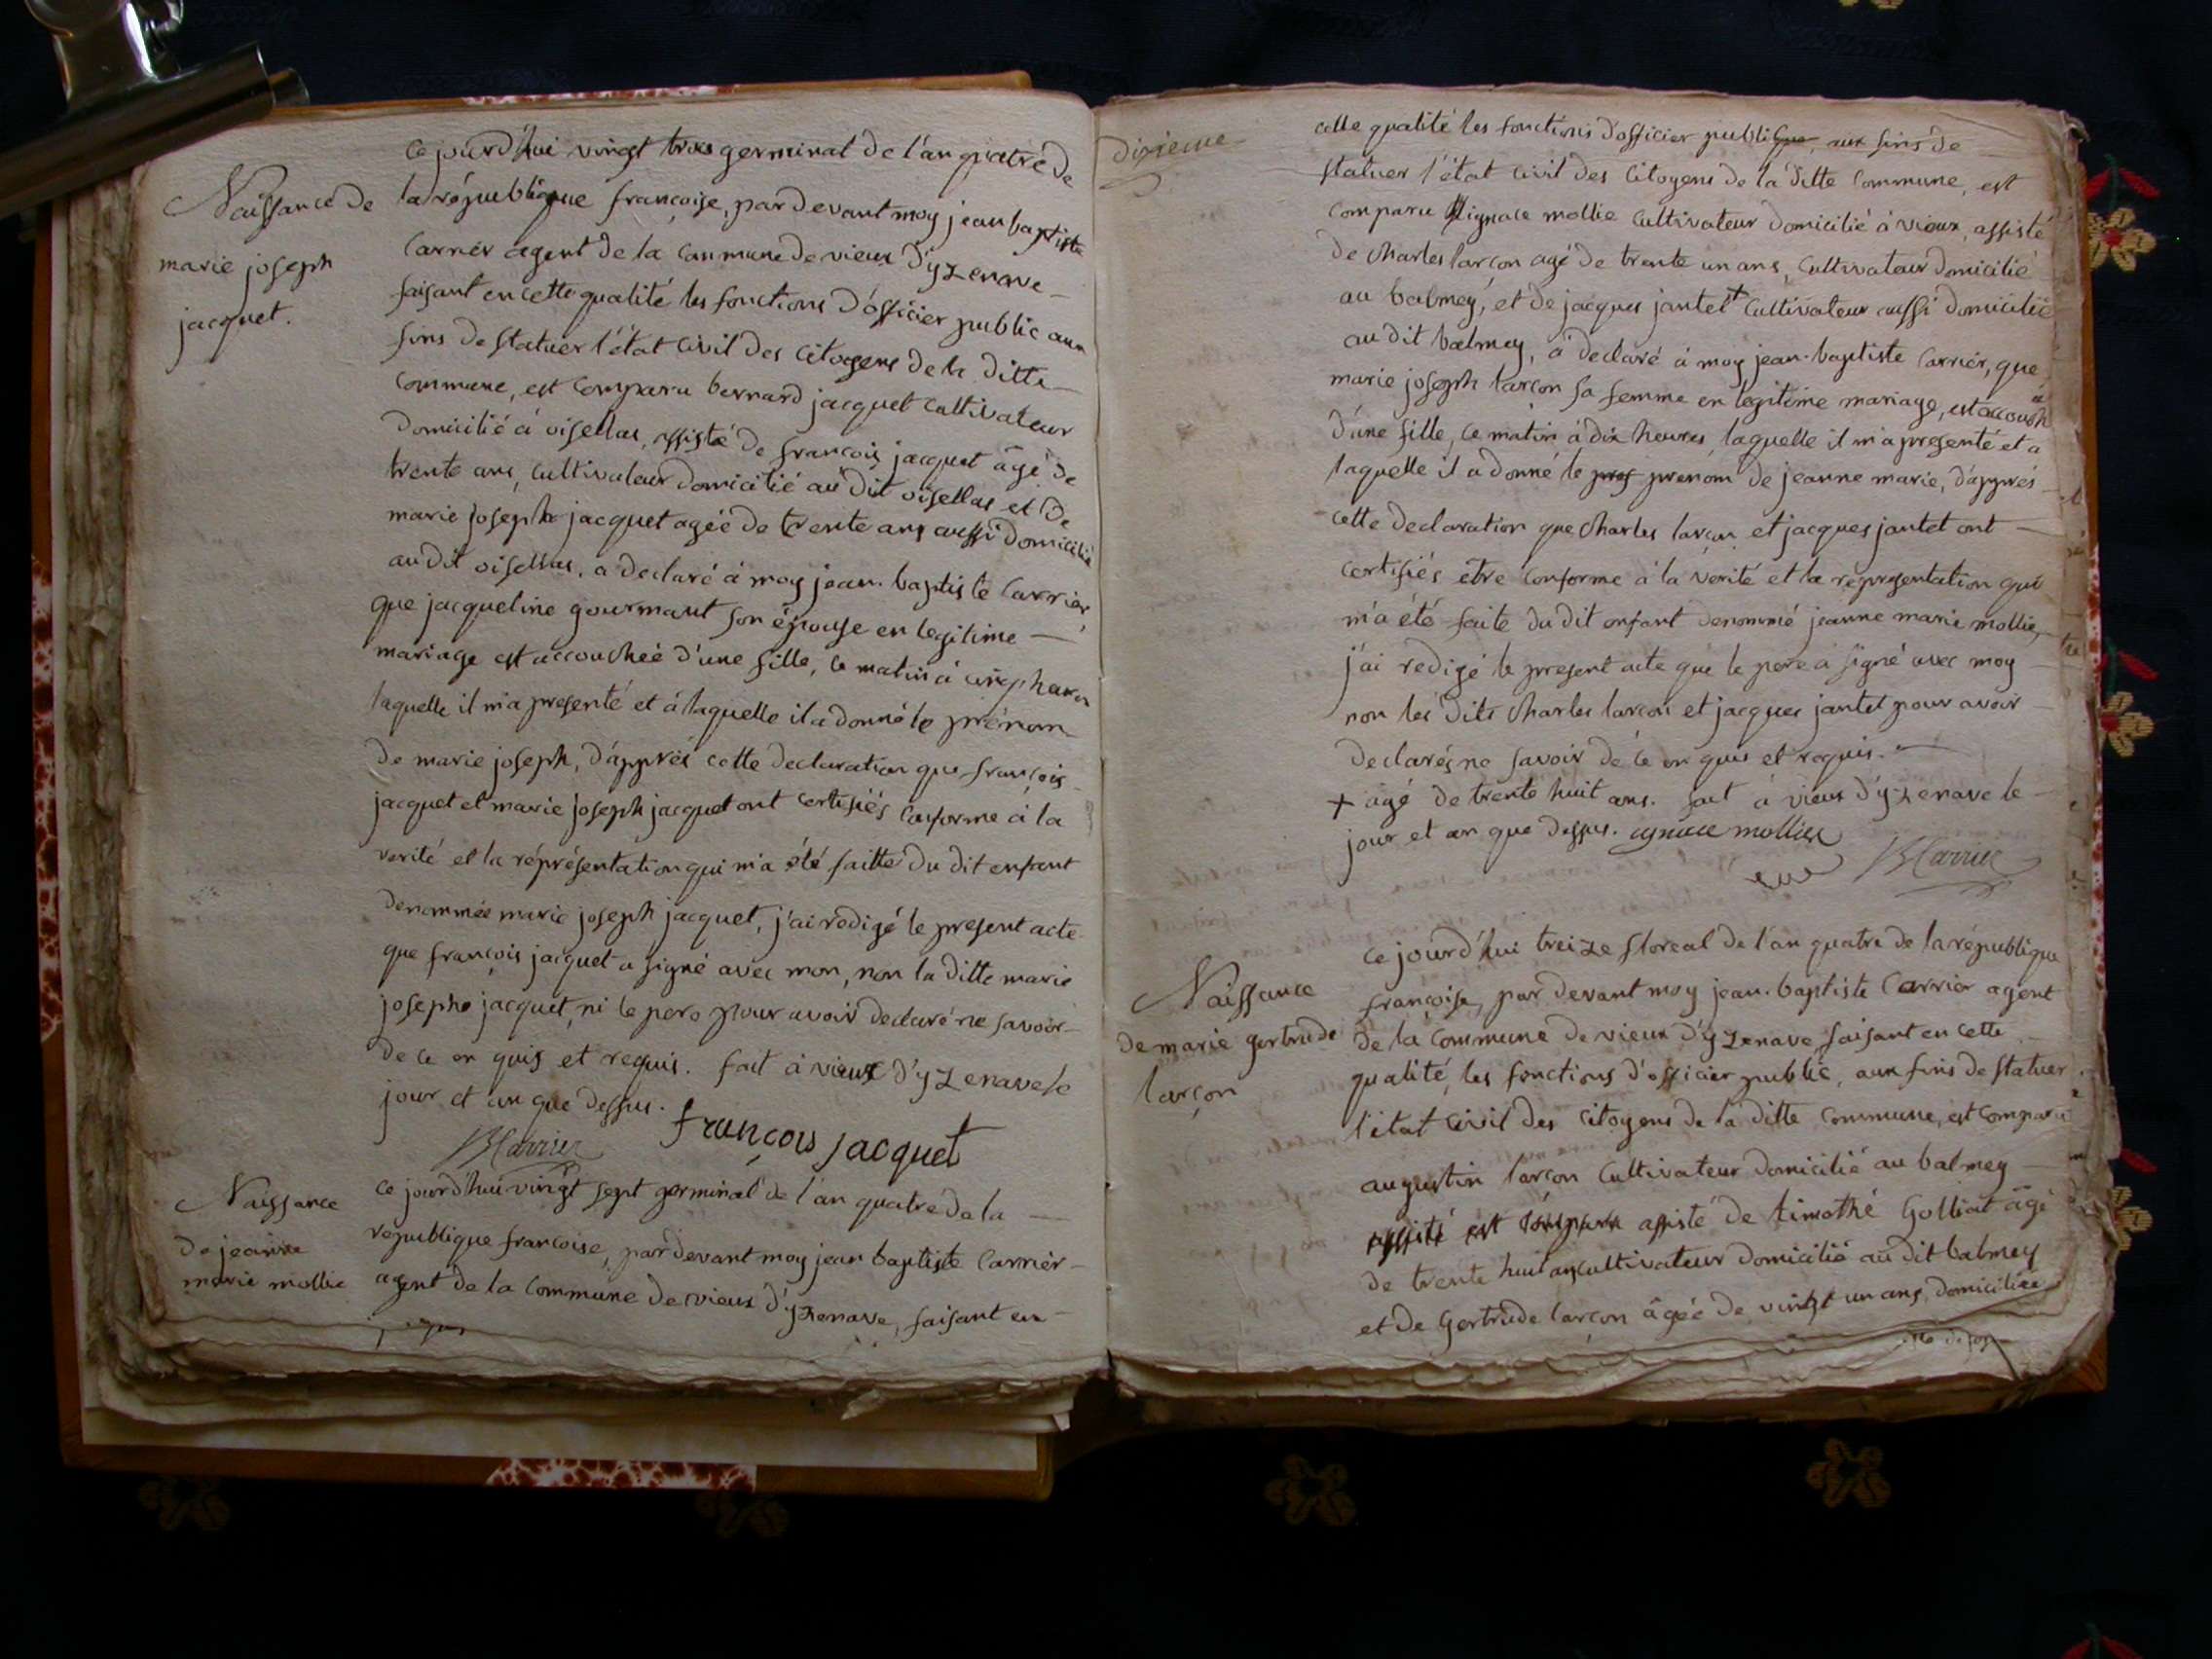 ce jourd'hui vingt trois germinal de l'an quatre de
la république françoise, par devant moy jean baptiste
Carrier agent de la commune de vieux d'yzenave
faisant en cette qualité les fonctions d'officier public aux
fins de statuer l'état civil des citoyens de la ditte
commune, est comparu bernard jacquet cultivateur
domicilié à oisellas, assisté de françois jacquet âgé de
trente ans, cultivateur domicilié au dit oisellas et de
marie joseph jacquet agée de trente ans aussi domicilié
au dit oisellas, a declaré à moy jean-baptiste Carrier,
que jacqueline gourmant son épouse en legitime
mariage est accouchée d'une fille, ce matin à cinq heures
laquelle il m'a presenté et à laquelle il a donné le prénom
de marie joseph, d'apprés cette declaration que françois
jacquet et marie joseph jacquet ont certifiés conforme à la
verité et la réprésentation qui m'a été faitte du dit enfant
denommée marie joseph jacquet, j'ai rédigé le present acte
que françois jacquet a signé avec mon, non la ditte marie
josephe jacquet, ni le pere pour avoir declaré ne savoir
de ce en quis et requis. fait à vieux d'yzenave le
jour et an que dessus.
JBCarrier françois jacquet
Naissance de
marie joseph
jacquet.
Naissance
de jeanne
marie mollie
ce jourd'hui vingt sept germinal de l'an quatre de la
republique francoise, par devant moy jean baptiste Carrier
agent de la commune de vieux d'yzenave, faisant en
dixieme
cette qualité les fonctions d'officier publique, aux fins de
statuer l'état civil des citoyens de la ditte commune, est
comparu ignace mollie cultivateur domicilié à vieux, assisté
de Charles larçon agé de trente un ans, cultivateur domicilié
au balmey, et de jacques jantet + cultivateur aussi domicilié
au dit balmey, a declaré à moy jean-baptiste Carrier, que
marie joseph larçon sa femme en legitime mariage, est accouchée
d'une fille, ce matin à dix heures, laquelle il m'a presenté et a
laquelle il a donné le prenom de jeanne marie, d'apprés
cette declaration que Charles larçon et jacques jantet ont
certifiés être conforme à la verité et la representation qui
m'a été faite du dit enfant denommé jeanne marie mollie,
j'ai redigé le present acte que le pere a signé avec moy
non les dits Charles larcon et jacques jantet pour avoir
declarés ne savoir de ce en quis et requis.
+ agé de trente huit ans. fait à vieux d'yzenave le
jour et an que dessus. ignace mollie
JBCarrier
Naissance
de marie gertrude
larçon
ce jourd'hui treize floreal de l'an quatre de la république
françoise, par devant moy jean-baptiste Carrier agent
de la commune de vieux d'yzenave, faisant en cette
qualité, les fonctions d'officier public, aux fins de statuer
l'état civil des citoyens de la ditte commune, est comparu
augustin larçon cultivateur domicilié au balmey
assité est comparu assisté de timothé Golliat âgé
de trente huit ans cultivateur domicilié au dit balmey
et de Gertrude larçon âgée de vingt un ans, domiciliée